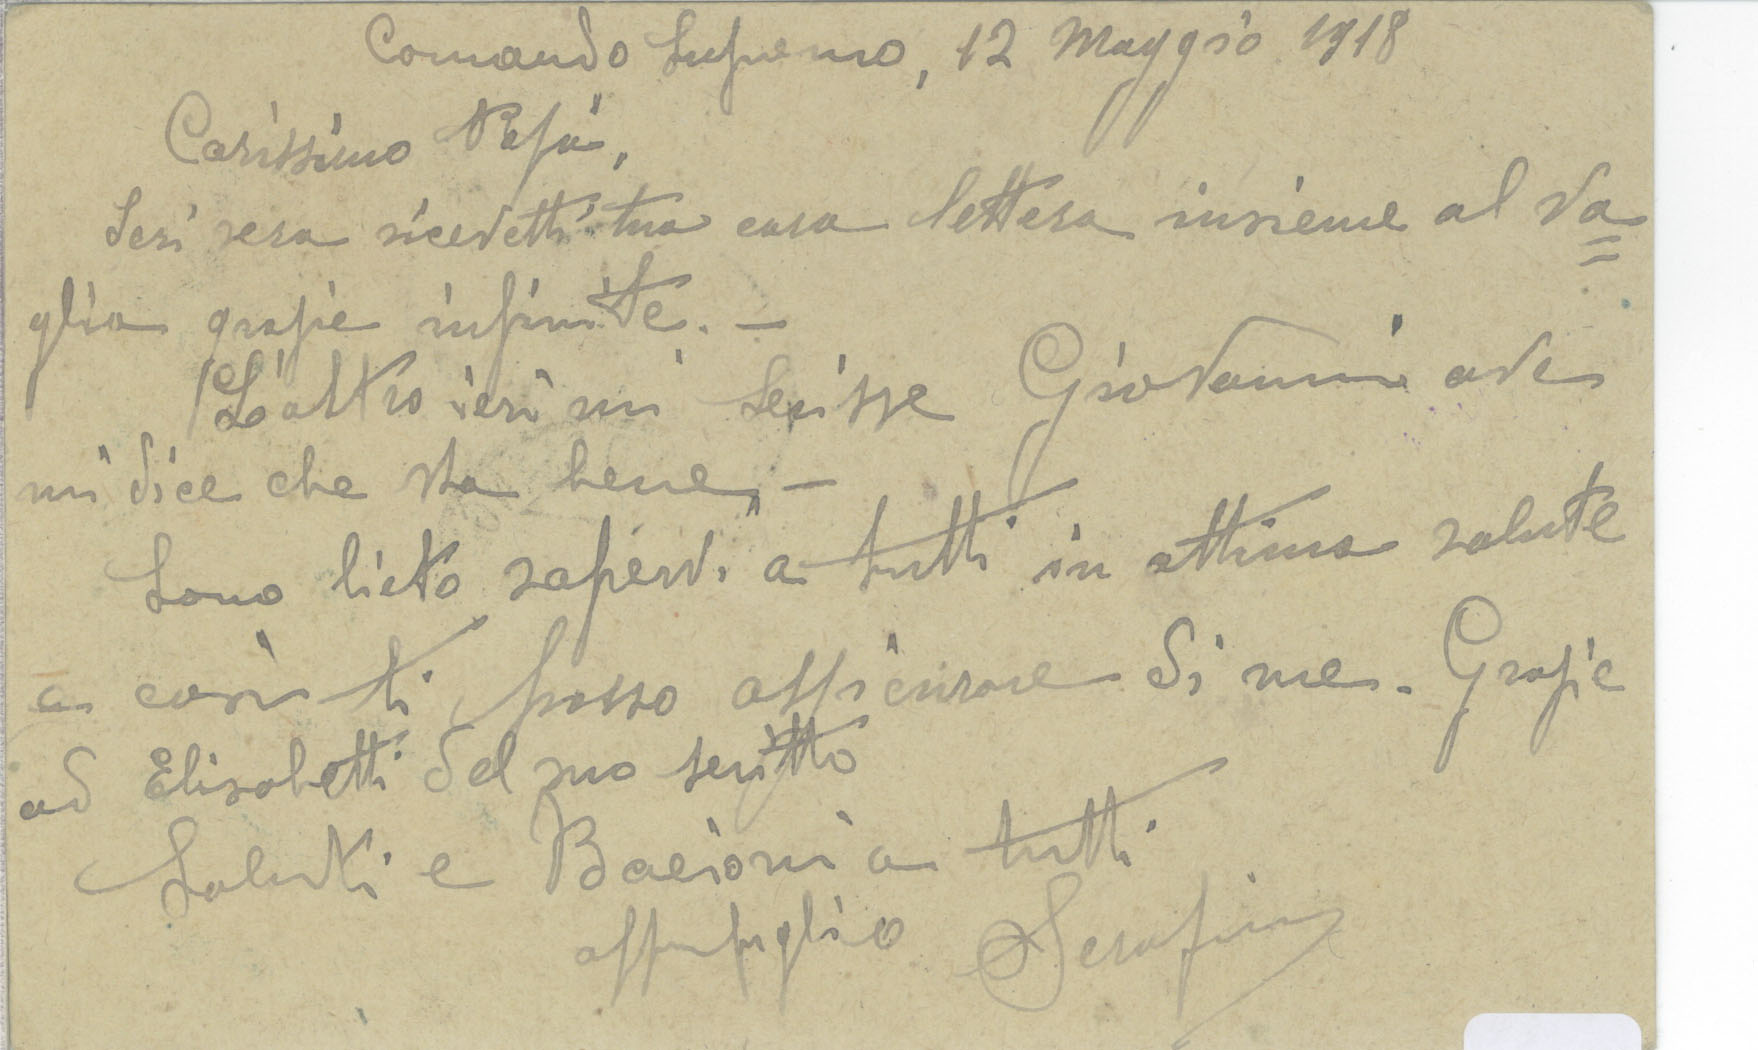 Comando Supremo, 12 Maggio 1918
Carissimo Papà,
Ieri sera ricevetti tua cara lettera insieme al va=
glia grazie infinite. -
L'altro ieri mi scrisse Giovanni ove
mi dice che sta bene, -
Sono lieto sapervi a tutti in ottima salute
e così ti posso assicurare di me. Grazie
ad Elisabetti del suo scritto
Saluti e Bacioni a tutti
aff figlio Serafino